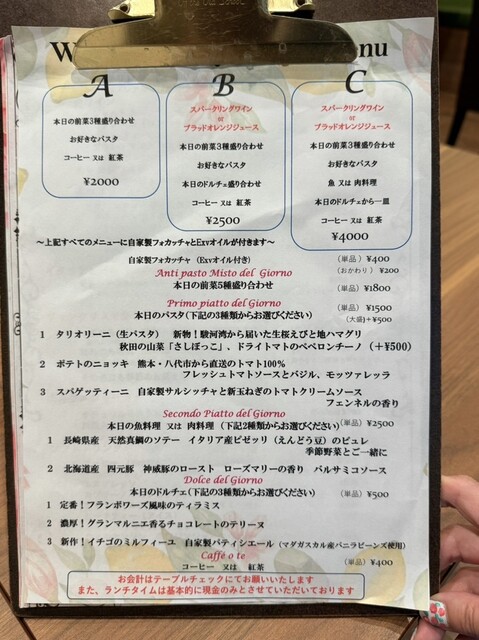 A
本日の前菜3種盛り合わせ
お好きなパスタ
コーヒー 又は 紅茶
¥2000
B
スパークリングワイン
or
ブラッドオレンジジュース
本日の前菜3種盛り合わせ
お好きなパスタ
本日のドルチェ盛り合わせ
コーヒー 又は 紅茶
¥2500
C
スパークリングワイン
or
ブラッドオレンジジュース
本日の前菜3種盛り合わせ
お好きなパスタ
魚 又は 肉料理
本日のドルチェから一皿
コーヒー 又は 紅茶
¥4000
～上記すべてのメニューに自家製フォカッチャとExvオイルが付きます～
自家製フォカッチャ (Exvオイル付き) (単品) ¥400
(おかわり) ¥200
Anti pasto Misto del Giorno
本日の前菜5種盛り合わせ (単品) ¥1800
Primo piatto del Giorno
本日のパスタ(下記の3種類からお選びください) (単品) ¥1500
(大盛)+¥500
1 タリオリーニ (生パスタ) 新物!駿河湾から届いた生桜えびと地ハマグリ
秋田の山菜「さしぼっこ」、ドライトマトのペペロンチーノ (+¥500)
2 ポテトのニョッキ 熊本・八代市から直送のトマト100%
フレッシュトマトソースとバジル、モッツァレッラ
3 スパゲッティーニ 自家製サルシッチャと新玉ねぎのトマトクリームソース
フェンネルの香り
Secondo Piatto del Giorno
本日の魚料理 又は 肉料理 (下記2種類からお選びください) (単品) ¥2500
1 長崎県産 天然真鯛のソテー イタリア産ピゼッリ (えんどう豆) のピュレ
季節野菜とご一緒に
2 北海道産 四元豚 神威豚のロースト ローズマリーの香り バルサミコソース
Dolce del Giorno
本日のドルチェ(下記の3種類からお選びください) (単品) ¥500
1 定番!フランボワーズ風味のティラミス
2 濃厚!グランマルニエ香るチョコレートのテリーヌ
3 新作!イチゴのミルフィーユ 自家製パティシエール (マダガスカル産バニラビーンズ使用)
Caffe o te
コーヒー 又は 紅茶 (単品) ¥400
お会計はテーブルチェックにてお願いいたします
また、ランチタイムは基本的に現金のみとさせていただいております